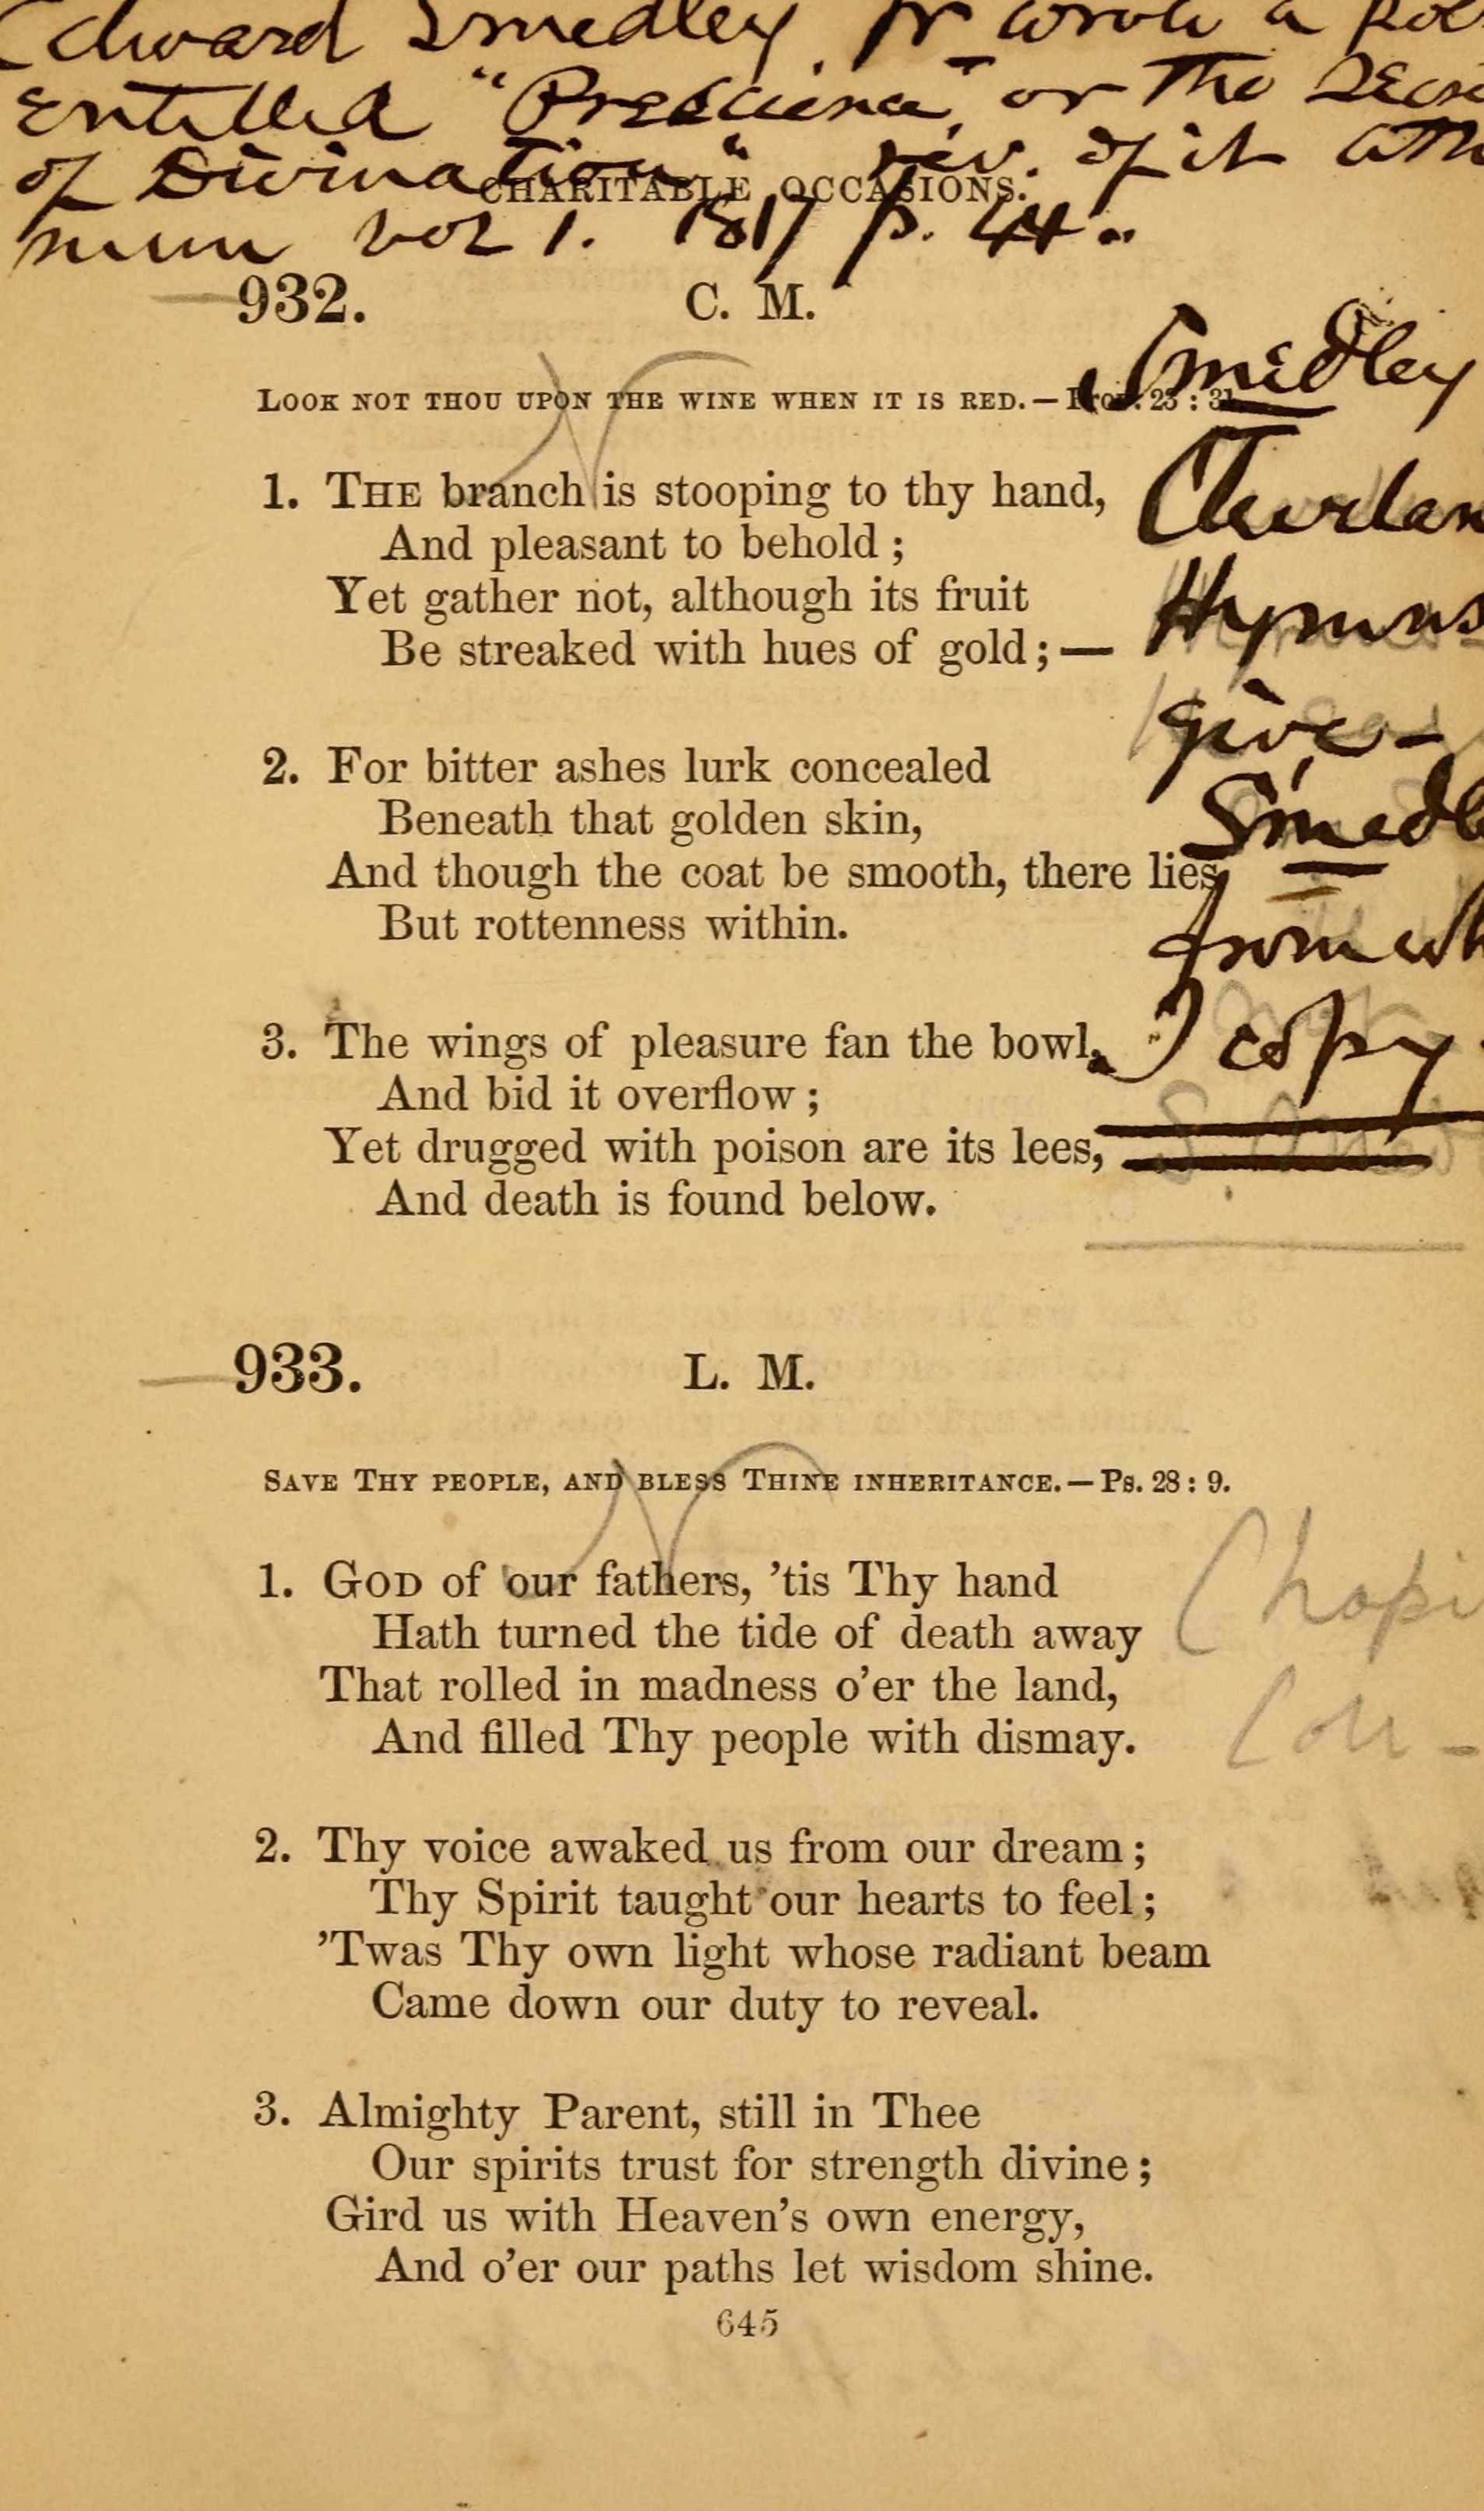 Edward Smedley Jr wrote a
Entitled "Prescience, or the
of Divination" rev. of it
CHARITABLE OCCASIONS.
vol 1. 1817 p. 44
932. C. M.
Smedley
LOOK NOT THOU UPON THE WINE WHEN IT IS RED. — Prov. 23 : 31.
1. THE branch is stooping to thy hand,
And pleasant to behold ;
Yet gather not, although its fruit
Be streaked with hues of gold ; —
Hymns
give -
2. For bitter ashes lurk concealed
Beneath that golden skin,
And though the coat be smooth, there lies
But rottenness within.
from
3. The wings of pleasure fan the bowl,
I copy
And bid it overflow ;
Yet drugged with poison are its lees,
And death is found below.
933. L. M.
SAVE THY PEOPLE, AND BLESS THINE INHERITANCE. — Ps. 28 : 9.
1. GOD of our fathers, 'tis Thy hand
Hath turned the tide of death away
That rolled in madness o'er the land,
And filled Thy people with dismay.
2. Thy voice awaked us from our dream ;
Thy Spirit taught our hearts to feel ;
'Twas Thy own light whose radiant beam
Came down our duty to reveal.
3. Almighty Parent, still in Thee
Our spirits trust for strength divine ;
Gird us with Heaven's own energy,
And o'er our paths let wisdom shine.
645